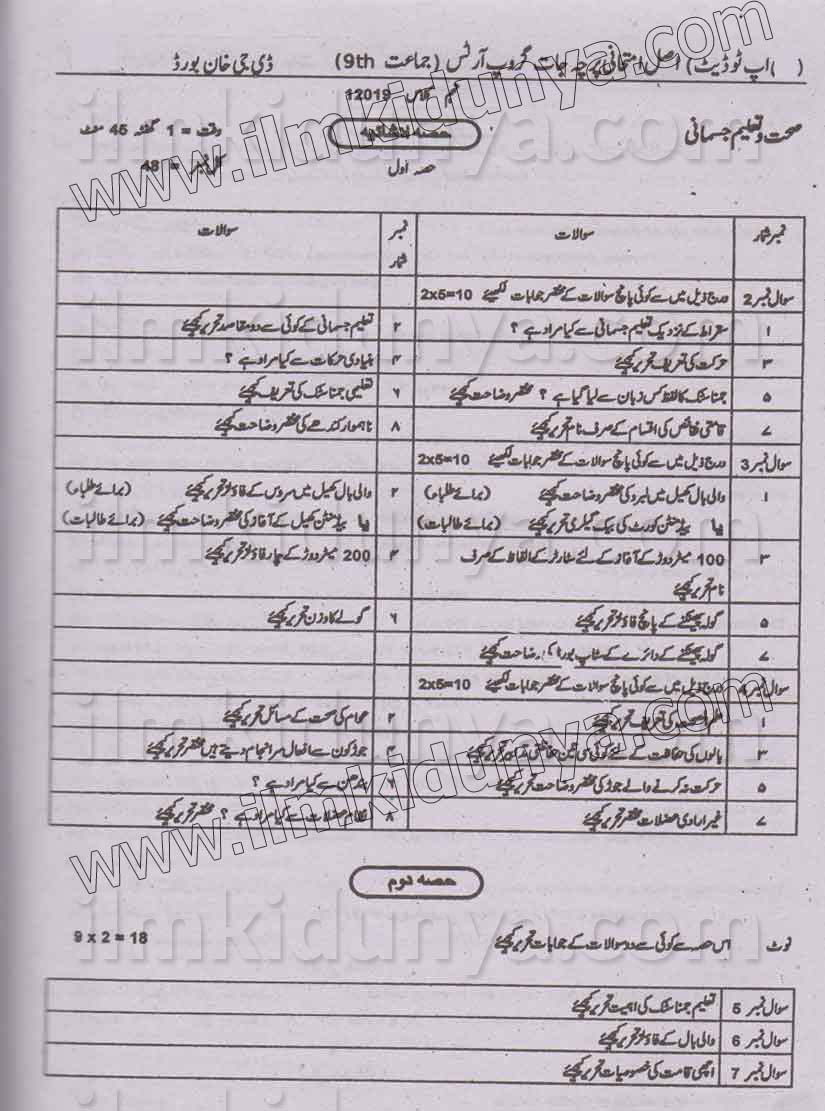 ( اپ ٹو ڈیٹ) اصل امتحانی پرچہ جات گروپ آرٹس (جماعت 9th) ڈی جی خان بورڈ
12019
صحت و تعلیم جسمانی حصہ انشائیہ وقت = 1 گھنٹہ 45 منٹ
حصہ اول کل نمبر = 48
نمبر شمار سوالات نمبر شمار سوالات
سوال نمبر 2 درج ذیل میں سے کوئی پانچ سوالات کے مختصر جوابات لکھیے 2x5=10
۱ سقراط کے نزدیک تعلیم جسمانی سے کیا مراد ہے ؟ ۲ تعلیم جسمانی کے کوئی سے دو مقاصد تحریر کیجئے
۳ حرکت کی تعریف تحریر کیجئے ۴ بنیادی حرکات سے کیا مراد ہے ؟
۵ جمناسٹک کا لفظ کس زبان سے لیا گیا ہے ؟ مختصر وضاحت کیجئے ۶ تعلیمی جمناسٹک کی تعریف کیجئے
۷ قامتی نقائص کی اقسام کے صرف نام تحریر کیجئے ۸ ناہموار کندھے کی مختصر وضاحت کیجئے
سوال نمبر 3 درج ذیل میں سے کوئی پانچ سوالات کے مختصر جوابات لکھیے 2x5=10
۱ والی بال کھیل میں لبرو کی مختصر وضاحت کیجئے (برائے طلباء) ۲ والی بال کھیل میں سروس کے فاؤلز تحریر کیجئے (برائے طلباء)
یا بیڈمنٹن کورٹ کی بیک گیلری تحریر کیجئے (برائے طالبات) یا بیڈمنٹن کھیل کے آغاز کی مختصر وضاحت کیجئے (برائے طالبات)
۳ 100 میٹر دوڑ کے آغاز کے لئے سٹارٹر کے الفاظ کے صرف ۴ 200 میٹر دوڑ کے چار فاؤلز تحریر کیجئے
نام تحریر کیجئے
۵ گولہ پھینکنے کے پانچ فاؤلز تحریر کیجئے ۶ گولے کا وزن تحریر کیجئے
۷ گولہ پھینکنے کے دائرے کے سٹاپ بورڈ کی وضاحت کیجئے
سوال نمبر 4 درج ذیل میں سے کوئی پانچ سوالات کے مختصر جوابات لکھیے 2x5=10
۱ علم صحت کی تعریف تحریر کیجئے ۲ عوام کی صحت کے مسائل تحریر کیجئے
۳ بالوں کی حفاظت کے لئے کوئی سی تین حفاظتی تدابیر تحریر کیجئے ۴ جوڑ کون سے افعال سرانجام دیتے ہیں مختصر تحریر کیجئے
۵ حرکت نہ کرنے والے جوڑ کی مختصر وضاحت تحریر کیجئے ۶ بندھن سے کیا مراد ہے ؟
۷ غیر ارادی عضلات مختصر تحریر کیجئے ۸ نظام عضلات سے کیا مراد ہے ؟ مختصر تحریر کیجئے
حصہ دوم
نوٹ اس حصہ سے کوئی سے دو سوالات کے جوابات تحریر کیجئے 9 x 2 = 18
سوال نمبر 5 تعلیم جمناسٹک کی اہمیت تحریر کیجئے
سوال نمبر 6 والی بال کے فاؤلز تحریر کیجئے
سوال نمبر 7 اچھی قامت کی خصوصیات تحریر کیجئے
www.ilmkidunya.com
www.ilmkidunya.com
ilmkidunya.com
ilmkidunya.com
ilmkidunya.com
ilmkidunya.com
ilmkidunya.com
ilmkidunya.com
ilmkidunya.com